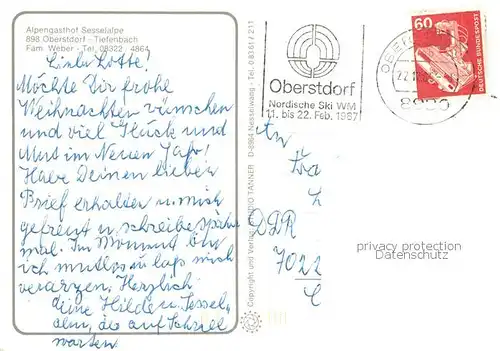 Alpengasthof Sesselalpe
898 Oberstdorf - Tiefenbach
Fam. Weber - Tel. 08322 4864
Liebe Lotte!
Möchte Dir frohe
Weihnachten wünschen
und viel Glück und
Mut im Neuen Jahr!
Habe Deinen lieben
Brief erhalten u. mich
gefreut u. schreibe später
mal. Im Moment bin
ich mutlos u. lass mich
verarzen. Herzlich
deine Hilde u. Sessel-
alm, die auf Schnee
warten
Copyright und Verlag TANNER D-8964 Nesselwang - Tel. 08361 / 211
Oberstdorf
Nordische Ski WM
11. bis 22. Feb. 1987
8980
60
DEUTSCHE BUNDESPOST
An
Fra
DDR
7022
L
privacy protection
Datenschutz